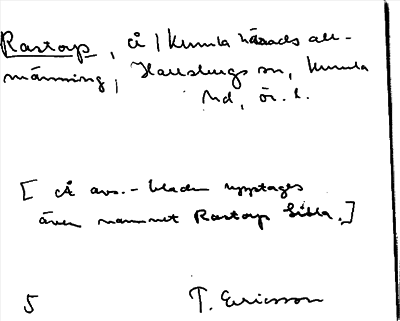 Rastorp, å / Kumla härads all-
männing, Hallsbergs sn, Kumla
hd, ör. l.
[ På avs.-bladen upptages
även namnet Rastorp Lilla.]
5 T. Ericsson